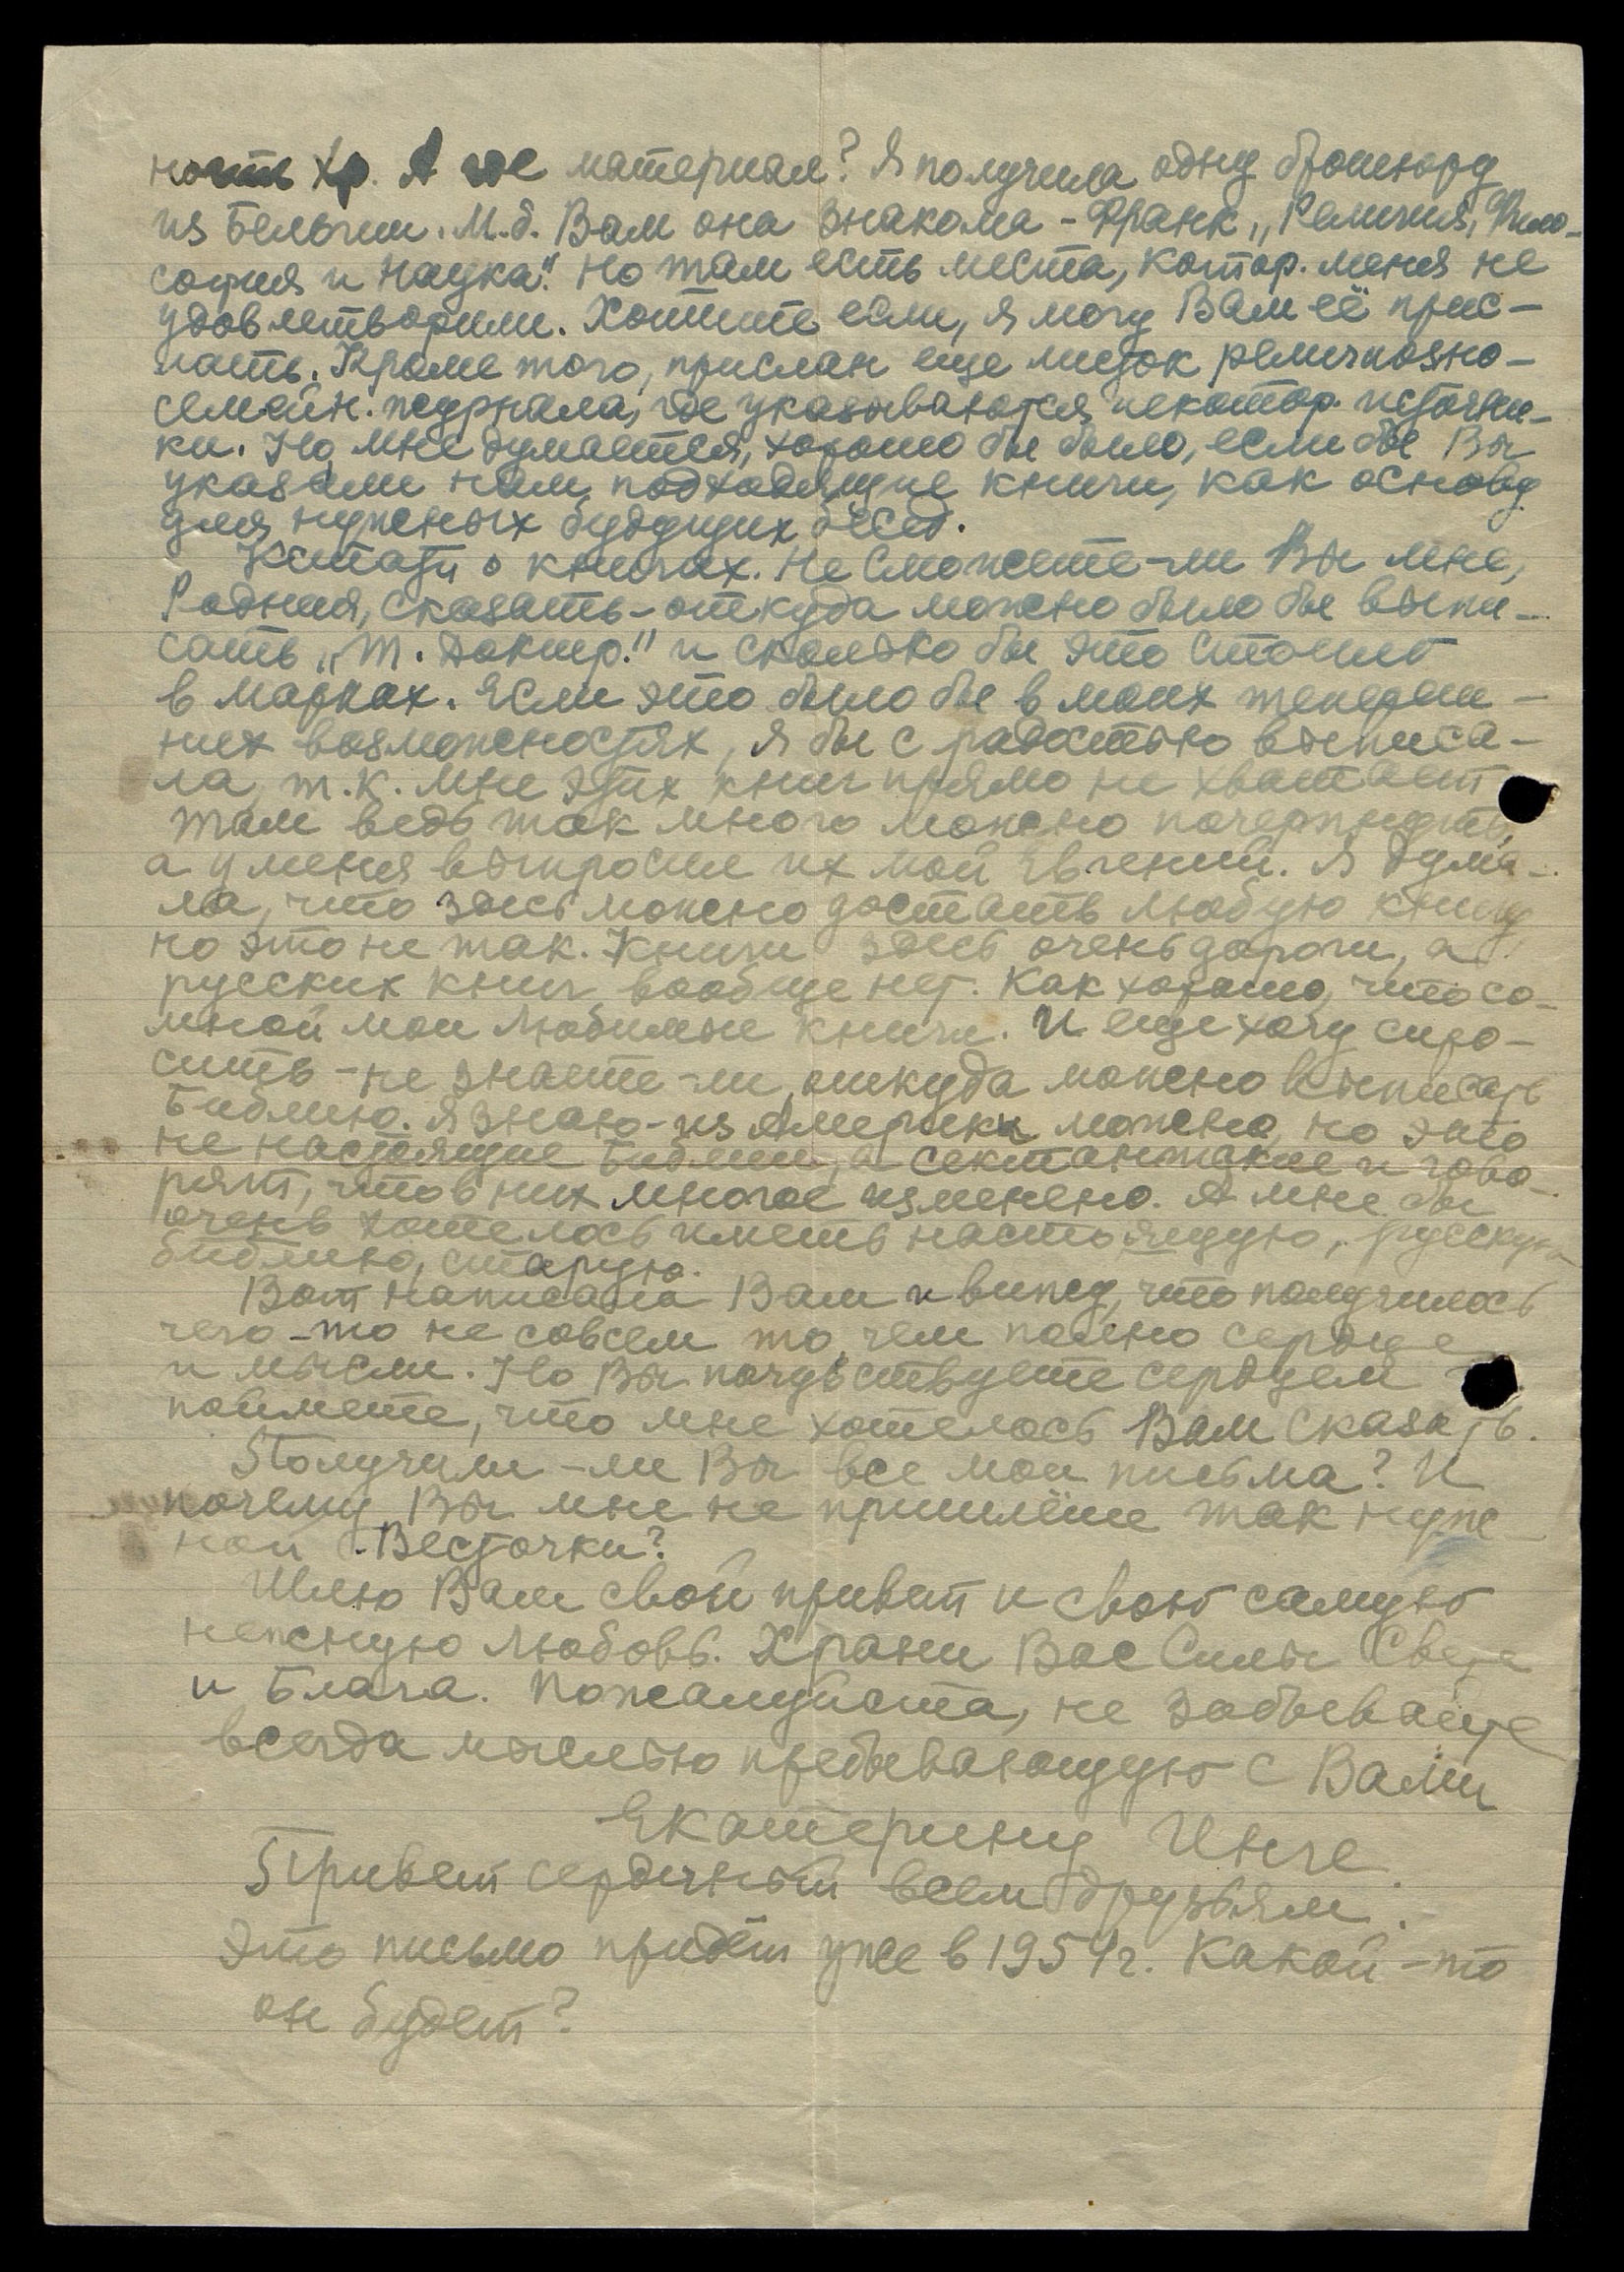 ность Хр. А где материал? Я получила одну брошюру
из Бельгии. М.б. Вам она знакома - Франк „Религия, Фило-
софия и Наука". Но там есть места, котор. меня не
удовлетворили. Хотите если, я могу Вам её прис-
лать. Кроме того, прислан еще листок религиозно-
семейн. журнала, где указываются некотор. источни-
ки. Но, мне думается, хорошо бы было, если бы Вы
указали нам подходящие книги, как основу
для нужных будущих бесед.
Кстати о книгах. Не сможете-ли Вы мне,
Родная, сказать - откуда можно было бы выпи-
сать „Т. Доктр." и сколько бы это стоит
в марках. Если это было бы в моих тепереш-
них возможностях, я бы с радостью выписа-
ла, т.к. мне этих книг прямо не хватает
там ведь так много можно почерпнуть,
а у меня выпросил их мой Евгений. Я дума-
ла, что здесь можно достать любую книгу
но это не так. Книги здесь очень дороги, а
русских книг вообще нет. Как хорошо, что со
мной мои любимые книги. И еще хочу спро-
сить - не знаете-ли, откуда можно выписать
Библию. Я знаю - из Америки можно, но это
не настоящие Библии, а сектантские и гово-
рят, что в них многое изменено. А мне бы
очень хотелось иметь настоящую, русскую
библию, старую.
Вот написала Вам и вижу, что получилось
чего-то не совсем то, чем полно сердце
и мысли. Но Вы почувствуете сердцем и
поймете, что мне хотелось Вам сказать.
Получили-ли Вы все мои письма? И
почему Вы мне не пришлёте так нуж-
ной Весточки?
Шлю Вам свой привет и свою самую
нежную любовь. Храни Вас Силы Света
и Блага. Пожалуйста, не забывайте
всегда мыслью пребывающую с Вами
Екатерину Инге.
Привет сердечный всем друзьям.
Это письмо придёт уже в 1954г. Какой-то
он будет?